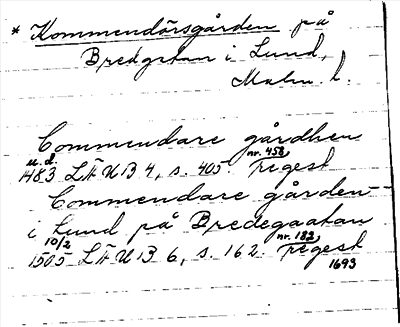 * Kommendörsgården på
Bredgatan i Lund,
Malm. l.
Commendare gårdhen
u.d. 1483 LÄUB 4, s. 405. nr. 458, regest
Commendare gården
i Lund på Bredegaatan
10/2 1505 LÄUB 6, s. 162. nr. 182, regest
1693